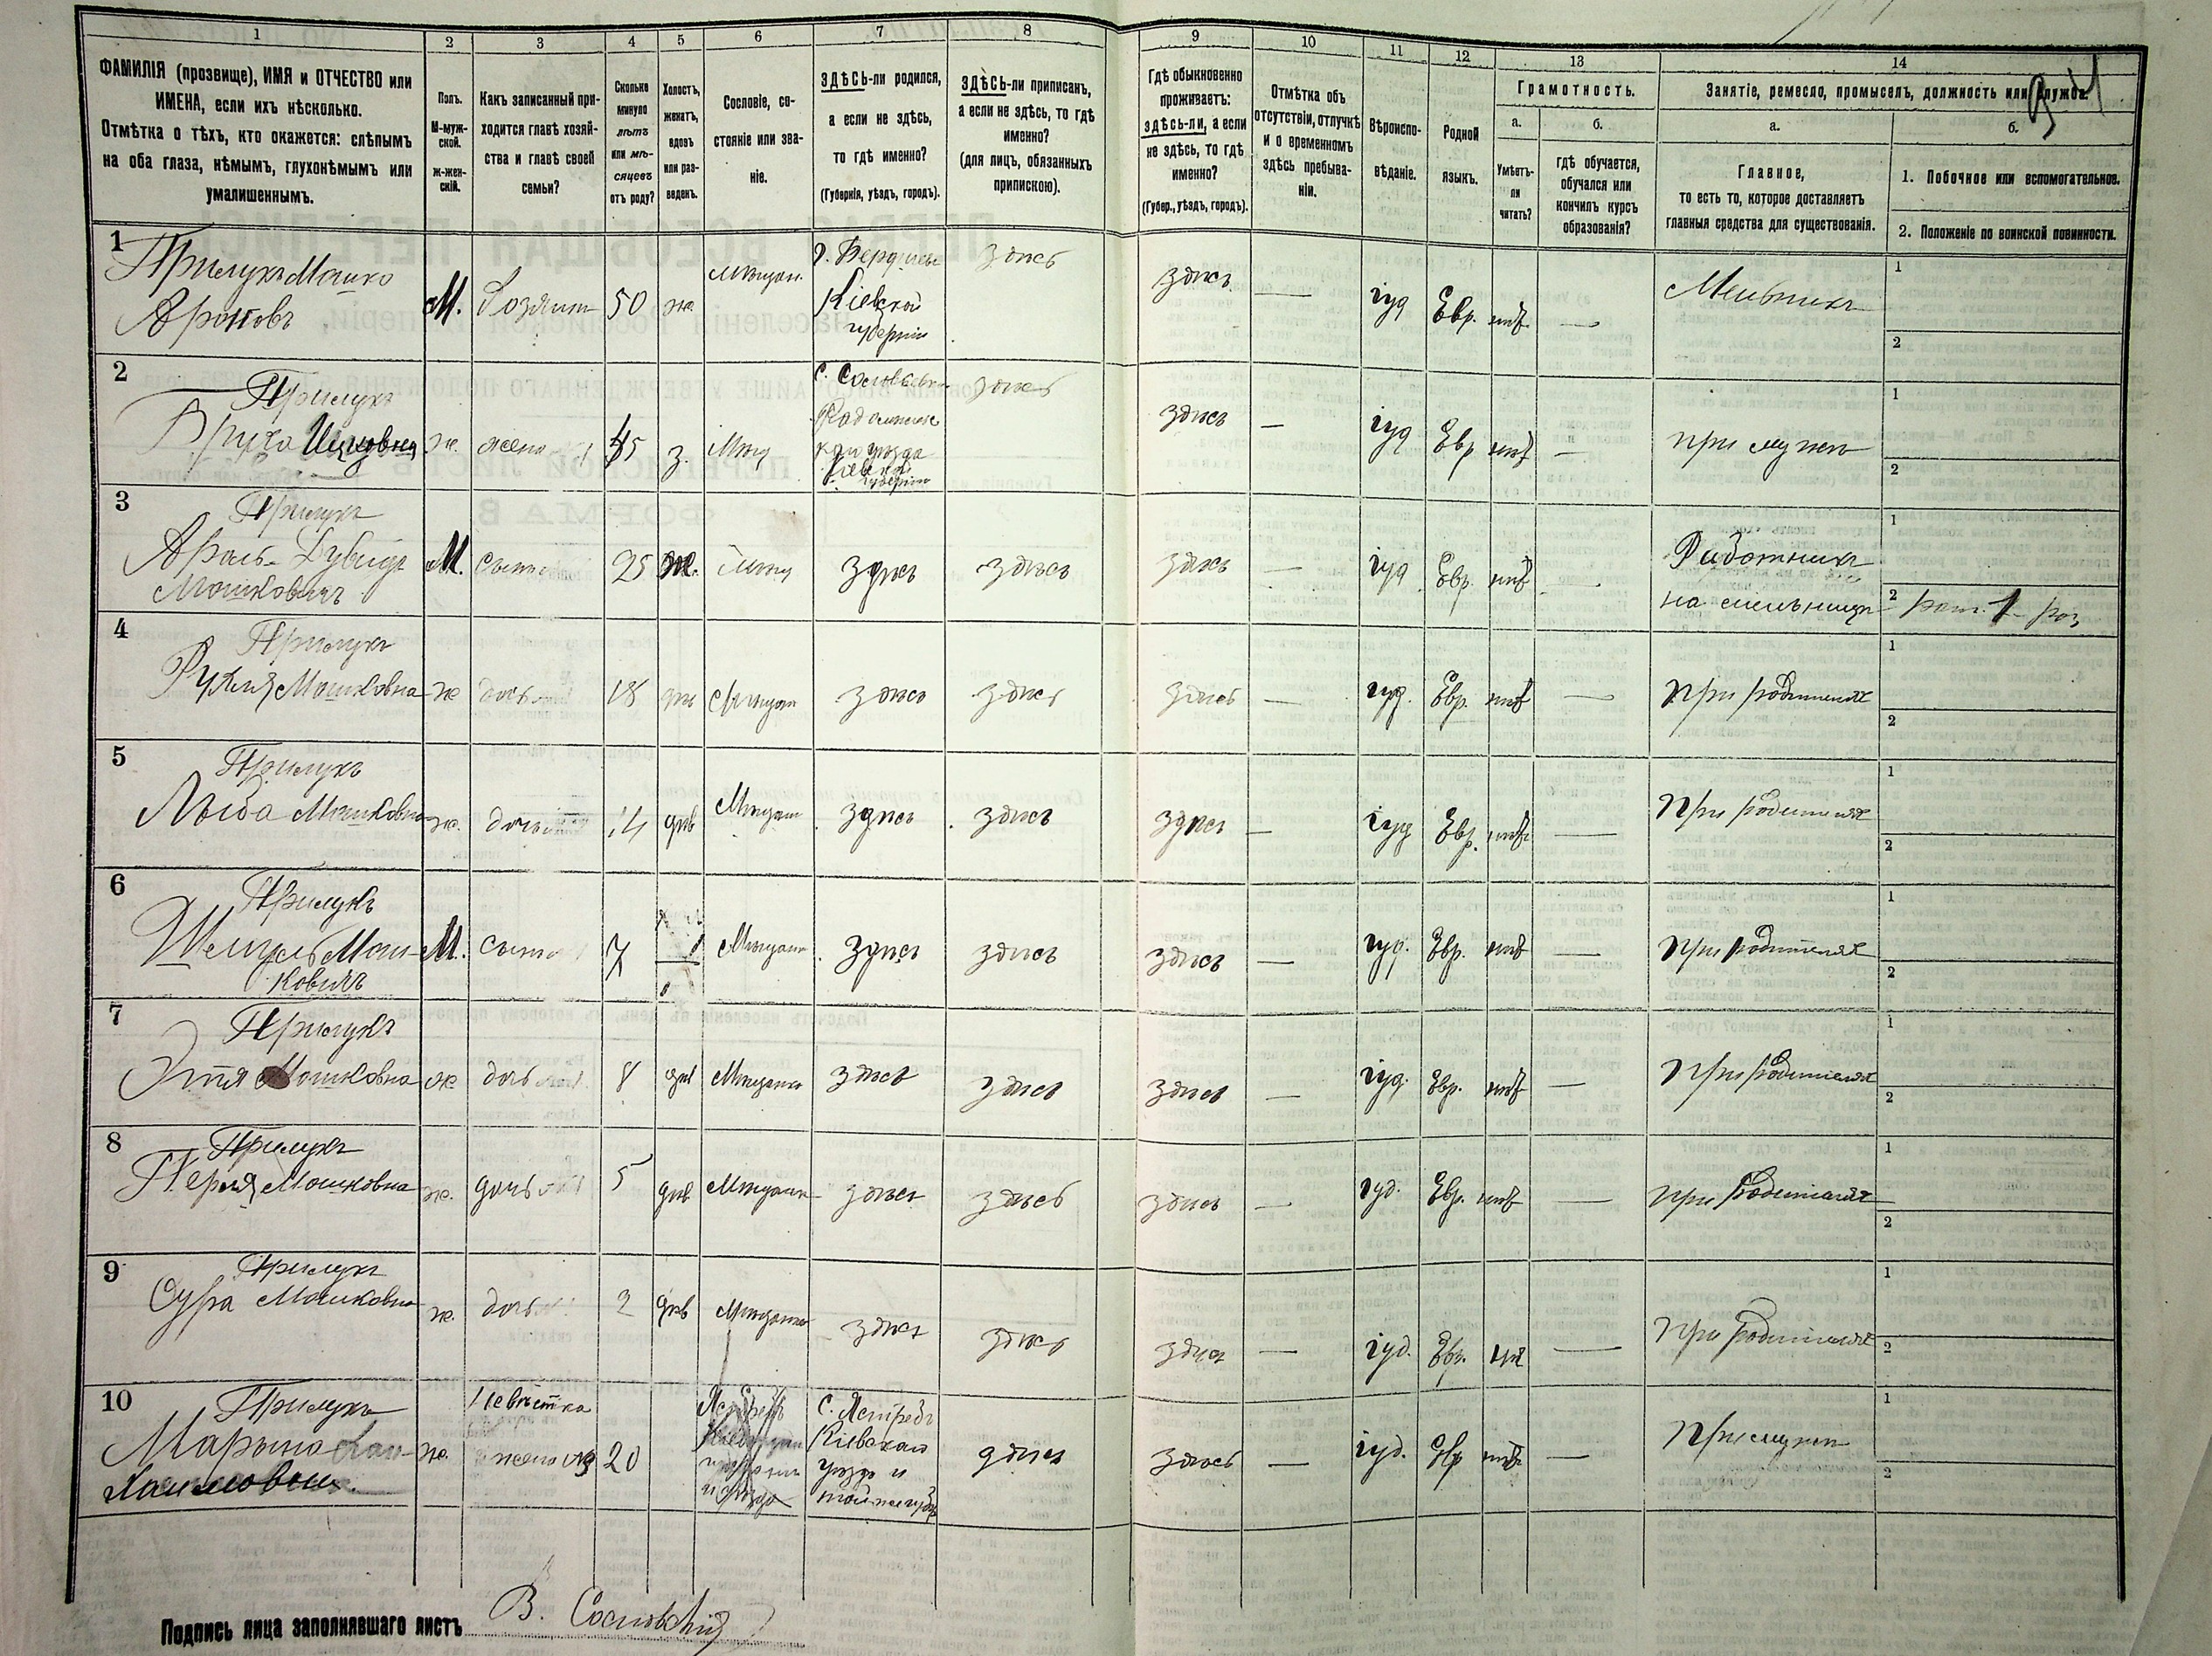 1 2 3 4 5 6 7 8 9 10 11 12 13 14
ФАМИЛІЯ (прозвище), ИМЯ и ОТЧЕСТВО или
ИМЕНА, если ихъ нѣсколько.
Отмѣтка о тѣхъ, кто окажется: слѣпымъ
на оба глаза, нѣмымъ, глухонѣмымъ или
умалишеннымъ.
Полъ.
М-муж-
ской.
Ж-жен-
скій.
Какъ записанный при-
ходится главѣ хозяй-
ства и главѣ своей
семьи?
Сколько
минуло
лѣтъ
или мѣ-
сяцевъ
отъ роду?
Холостъ,
женатъ,
вдовъ
или раз-
веденъ.
Сословіе, со-
стояніе или зва-
ніе.
ЗДѢСЬ-ли родился,
а если не здѣсь,
то гдѣ именно?
(Губернія, уѣздъ, городъ).
ЗДѢСЬ-ли приписанъ,
а если не здѣсь, то гдѣ
именно?
(для лицъ, обязанныхъ
припискою).
Гдѣ обыкновенно
проживаетъ:
здѣсь-ли, а если
не здѣсь, то гдѣ
именно?
(Губер., уѣздъ, городъ).
Отмѣтка объ
отсутствіи, отлучкѣ
и о временномъ
здѣсь пребыва-
ніи.
Вѣроиспо-
вѣданіе.
Родной
языкъ.
Грамотность.
а.
Умѣетъ-
ли
читать?
б.
гдѣ обучается,
обучался или
кончилъ курсъ
образованія?
Занятіе, ремесло, промыселъ, должность или служба.
а.
Главное,
то есть то, которое доставляетъ
главныя средства для существованія.
б.
1. Побочное или вспомогательное.
2. Положеніе по воинской повинности.
1
Прилукъ Мошко
Ароновъ
М. Хозяинъ 50 ж. мѣщан.
г. Бердичевъ
Кіевской
губерніи
здѣсь здѣсь — іуд Евр. нѣт — Мельникъ
1
2
2
Прилукъ
ж. жена 45 з. Мѣщ
Кіевской
губерніи
здѣсь здѣсь — іуд Евр нѣт — при мужѣ
1
2
3
Прилукъ
Мошковичъ
М. сынъ 25 ж. Мѣщ здѣсь здѣсь здѣсь — іуд Евр. нѣт
Работникъ
на мельницѣ
1
2
4
Прилукъ
Рухля Мошковна ж дочь 18 дѣв Мѣщан здѣсь здѣсь здѣсь — іуд. Евр. нѣт — при родителях
1
2
5
Прилукъ
Мошковна ж. дочь 14 дѣв Мѣщан здѣсь здѣсь здѣсь — іуд Евр. нѣт — при родителях
1
2
6
Прилукъ
Шмуль Мош-
ковичъ
М. сынъ 7 Мѣщан здѣсь здѣсь здѣсь — іуд. Евр. нѣт — при родителях
1
2
7
Прилукъ
Этля Мошковна ж дочь 8 дѣв Мѣщан здѣсь здѣсь здѣсь — іуд. Евр. нѣт — при родителях
1
2
8
Прилукъ
Перля Мошковна ж. дочь 5 дѣв Мѣщан здѣсь здѣсь здѣсь — іуд. Евр. нѣт — при родителях
1
2
9
Прилукъ
Сура Мошковна ж. дочь 2 дѣв Мѣщан здѣсь здѣсь здѣсь — іуд. Евр. нѣт — при родителях
1
2
10
Прилукъ
Невѣстка
жена №3 20
с. Ястребъ
Кіевскаго
уѣзда и
той-же губ
здѣсь здѣсь — іуд. Евр нѣт — при мужѣ
1
2
Подпись лица заполнявшаго листъ В. Сосновскій